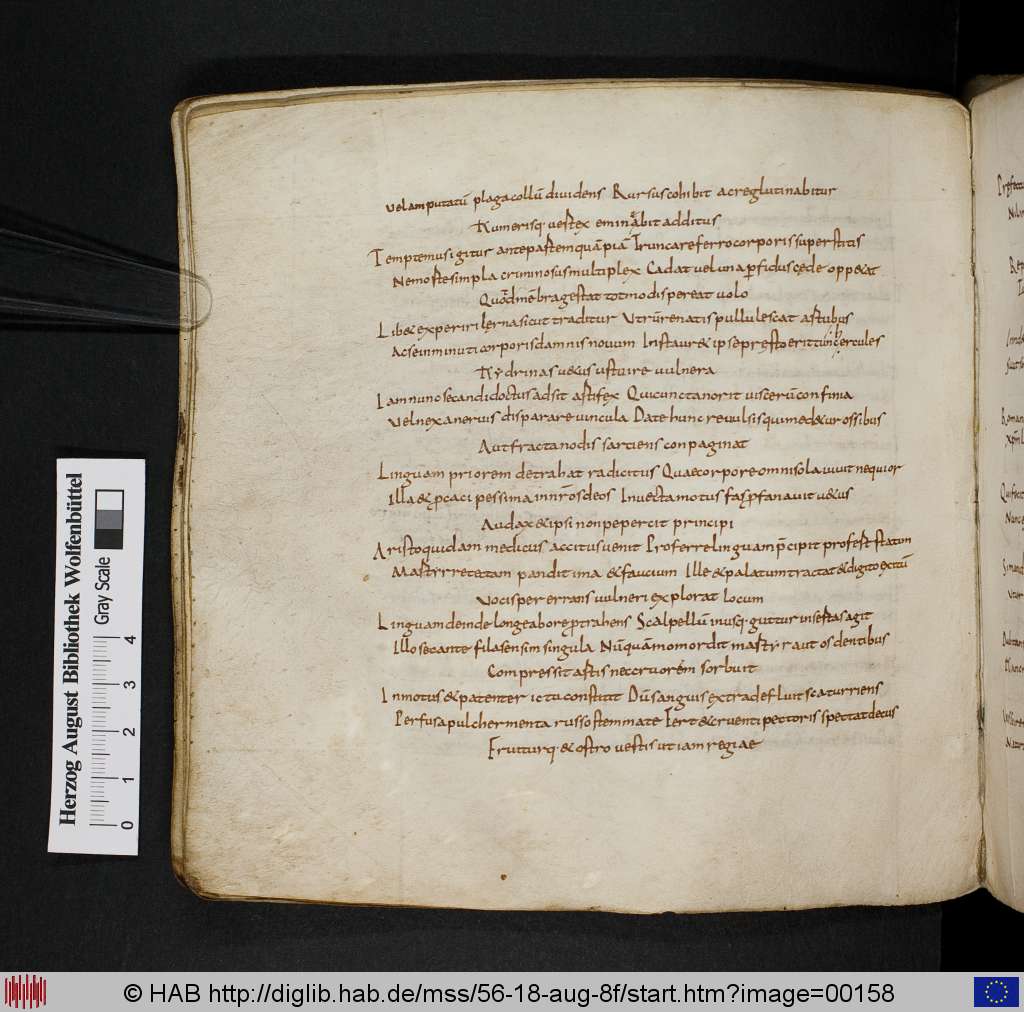 uelamputatū plagacollū diuidens Rursuscohibit acreglutinabitur
Numerisq; uestex eminabit additus
Temptemusigitur antepastemquāpiā Truncareferrocorporissuperstitis
Nemostesimpla criminosusmultiplex Cadat ueluna pfiduscede oppetat
Quotmēbragestat totmodispereat uolo
Libetexperiri lernasicut traditur Utrūrenatispullulescat astubus
Acseinminuti corporisdamnisnouum Instauret ipseprestoerittunchercules
Hydrinas uetus usturire uulnera
Iamnuncsecandidoctusadsit astifex Quicunctanorit uiscerūconfinia
uelnexaneruis disparareuincula Datehuncreuulsisquimedetur ossibus
Autfractanodis sarciensconpaginat
Linguam priorem detrahat radicitus Quaecorporeomnisola uiuit nequior
Illa et pcaci pessima innrōsdeos Inuectamotus faspfanauit uetus
Audax etipsi nonpepercit principi
Aristoquidam medicus accitusuenit Proferrelinguam pcipit profest statim
Mastyrretectam pandit ima etfaucium Ille et palatumtractat etdigitoexitū
Vocisper errans uulneri explorat locum
Linguamdeindelongeaboreprotrahens Scalpellū inusq; guttur insestasagit
Illosecante filasensim singula Nūquāmomordit mastyr aut os dentibus
Compressit astis neccruorem sorbuit
Inmotus etpatenter ictuconstitit Dūsanguisextradefluit scaturriens
Perfusapulchermenta russostemmate Fert etcruenti pectoris spectat decus
Fruiturq; et ostro uestis utiam regiae
Herzog August Bibliothek Wolfenbüttel
Gray Scale
0 1 2 3 4
© HAB http://diglib.hab.de/mss/56-18-aug-8f/start.htm?image=00158